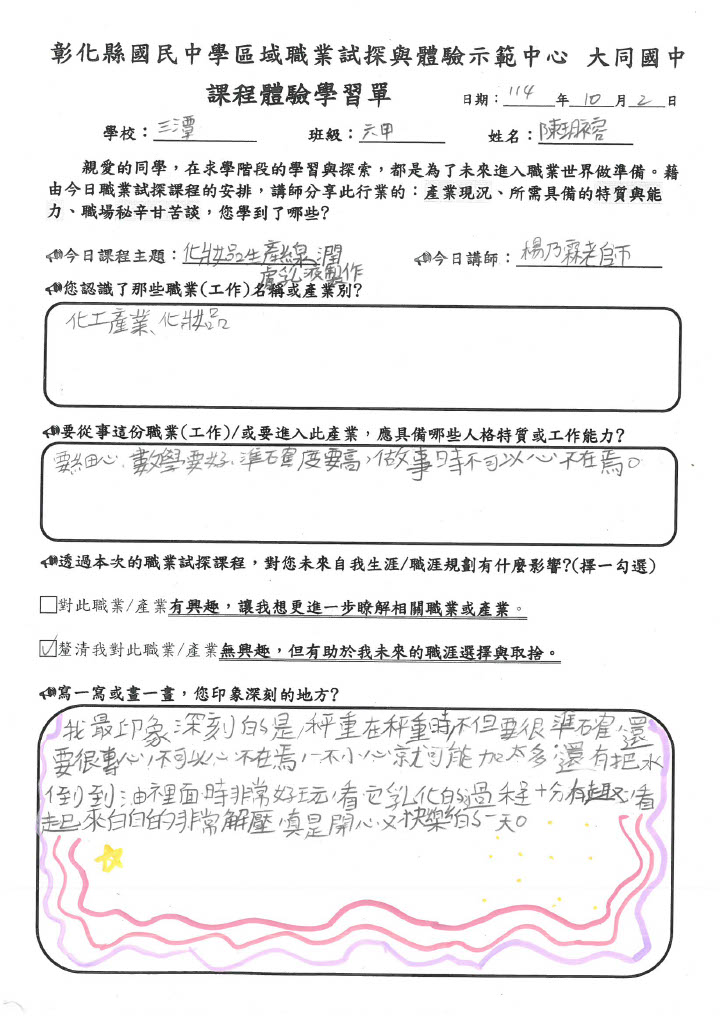 彰化縣國民中學區域職業試探與體驗示範中心 大同國中
課程體驗學習單
日期：114年10月2日
學校：三潭 班級：六甲 姓名：陳玥容
親愛的同學，在求學階段的學習與探索，都是為了未來進入職業世界做準備。藉
由今日職業試探課程的安排，講師分享此行業的：產業現況、所需具備的特質與能
力、職場秘辛甘苦談，您學到了哪些？
今日課程主題：化妝品生產線潤 今日講師：楊乃霖老師
膚乳液製作
您認識了那些職業(工作)名稱或產業別?
化工產業、化妝品
要從事這份職業(工作)/或要進入此產業，應具備哪些人格特質或工作能力?
要細心、數學要好、準確度要高，做事時不可以心不在焉。
透過本次的職業試探課程，對您未來自我生涯/職涯規劃有什麼影響?(擇一勾選)
□對此職業/產業有興趣，讓我想更進一步瞭解相關職業或產業。
☑釐清我對此職業/產業無興趣，但有助於我未來的職涯選擇與取捨。
寫一寫或畫一畫，您印象深刻的地方?
我最印象深刻的是，秤重在秤重時，不但要很準確，還
要很專心，不可以心不在焉，一不小心就可能加太多，還有把水
倒到油裡面時非常好玩，看它乳化的過程十分有趣，看
起來白白的非常解壓，真是開心又快樂的一天。